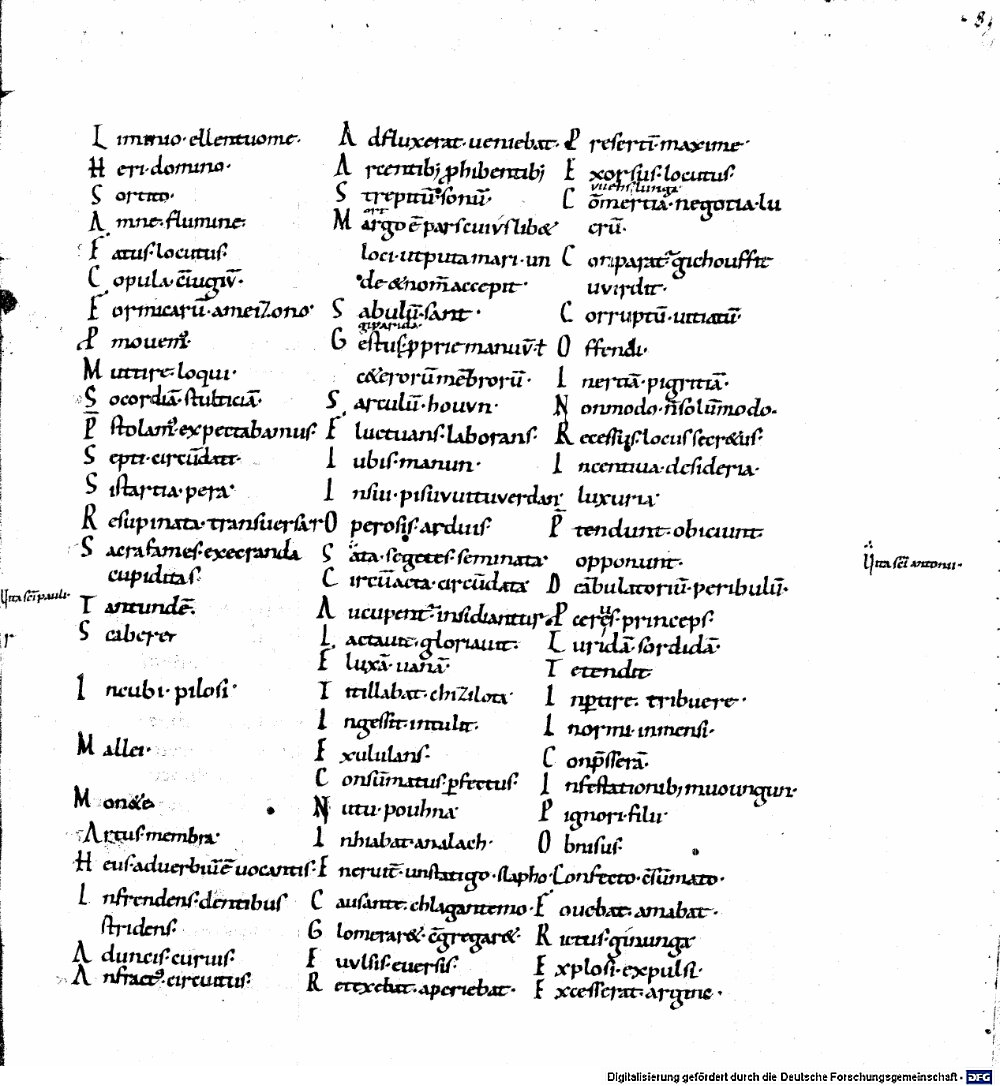 8
L immuo· ellentuome·
H eri· domino·
S ortito·
A mne· flumine·
F atus· locutus·
C opula· c̄iugiū·
F ormicarū· ameizono·
P mouem̄·
M uttire· loqui·
S ocordiā· stulticiā·
P̄ stolam· expectabamus·
S epti· circūdati·
S istartia· pera·
R esupinata· transuersa
S acra fames· execranda
cupiditas·
Vita sc̄i pauli·
T antundē·
S caberet
I ncubi· pilosi·
M allei·
M on&e
A rtus· membra·
H eus· aduerbiū ē uocantis·
I nfrendens· dentibus
stridens·
A duncis· curuis·
A nfract· circuitus·
A dfluxerat· ueniebat·
A rcentib; ꝓhibentib;
S trepitū· sonū·
M argo ē pars cuiuslib&
art
loci· utputa mari· un
de & nom̄ accepit·
S abulū· sant·
giparida
G estus· ꝓprie manuū· t
c&erorū mēbrorū·
S arculū· houvn·
F luctuans· laborans·
I ubis· manun·
I nsiti· pisuvuttuverdan
O perosis· arduis
S ata· segetes· seminata·
C ircūacta· circūdata
A ucupent· insidiantur·
L actauit· gloriauit·
F luxā· uanā·
T itillabat· chizilota·
I ngessit· intulit·
E xululans·
C onsūmatus· ꝑfectus·
N utu· pouhna
I nhiabat· analach·
E neruit· unstatigo· slapho·
C ausante· chlagantemo·
G lomerar&· c̄gregar&·
E uulsis· euersis·
R etexebat· aperiebat·
P refertī· maxime·
E xorsus· locutus·
C ōmertia· negotia· lu
crū·
C onparat· gichouffit
uvirdit·
C orruptū· uitiatū·
O ffendi·
I nertiā· pigritiā·
N onmodo· n̄ solūmodo·
R ecessus· locus secr&us·
I ncentiua· desideria·
luxuria·
P̄ tendunt· obiciunt
opponunt·
Vita sc̄i antonii·
D eābulatoriū· peribulū·
P ceres· princeps·
L uridā· sordidā·
T etendit·
I nꝑtire· tribuere·
I normi· inmensi·
C onp̄sserā·
I nfestationib; muoungun·
P ignori· filii·
O brusus·
Confecto· c̄sūmato·
F ouebat· amabat·
R ictus· ginunga
E xplosi· expulsi·
E xcesserat· argine·
Digitalisierung gefördert durch die Deutsche Forschungsgemeinschaft - DFG